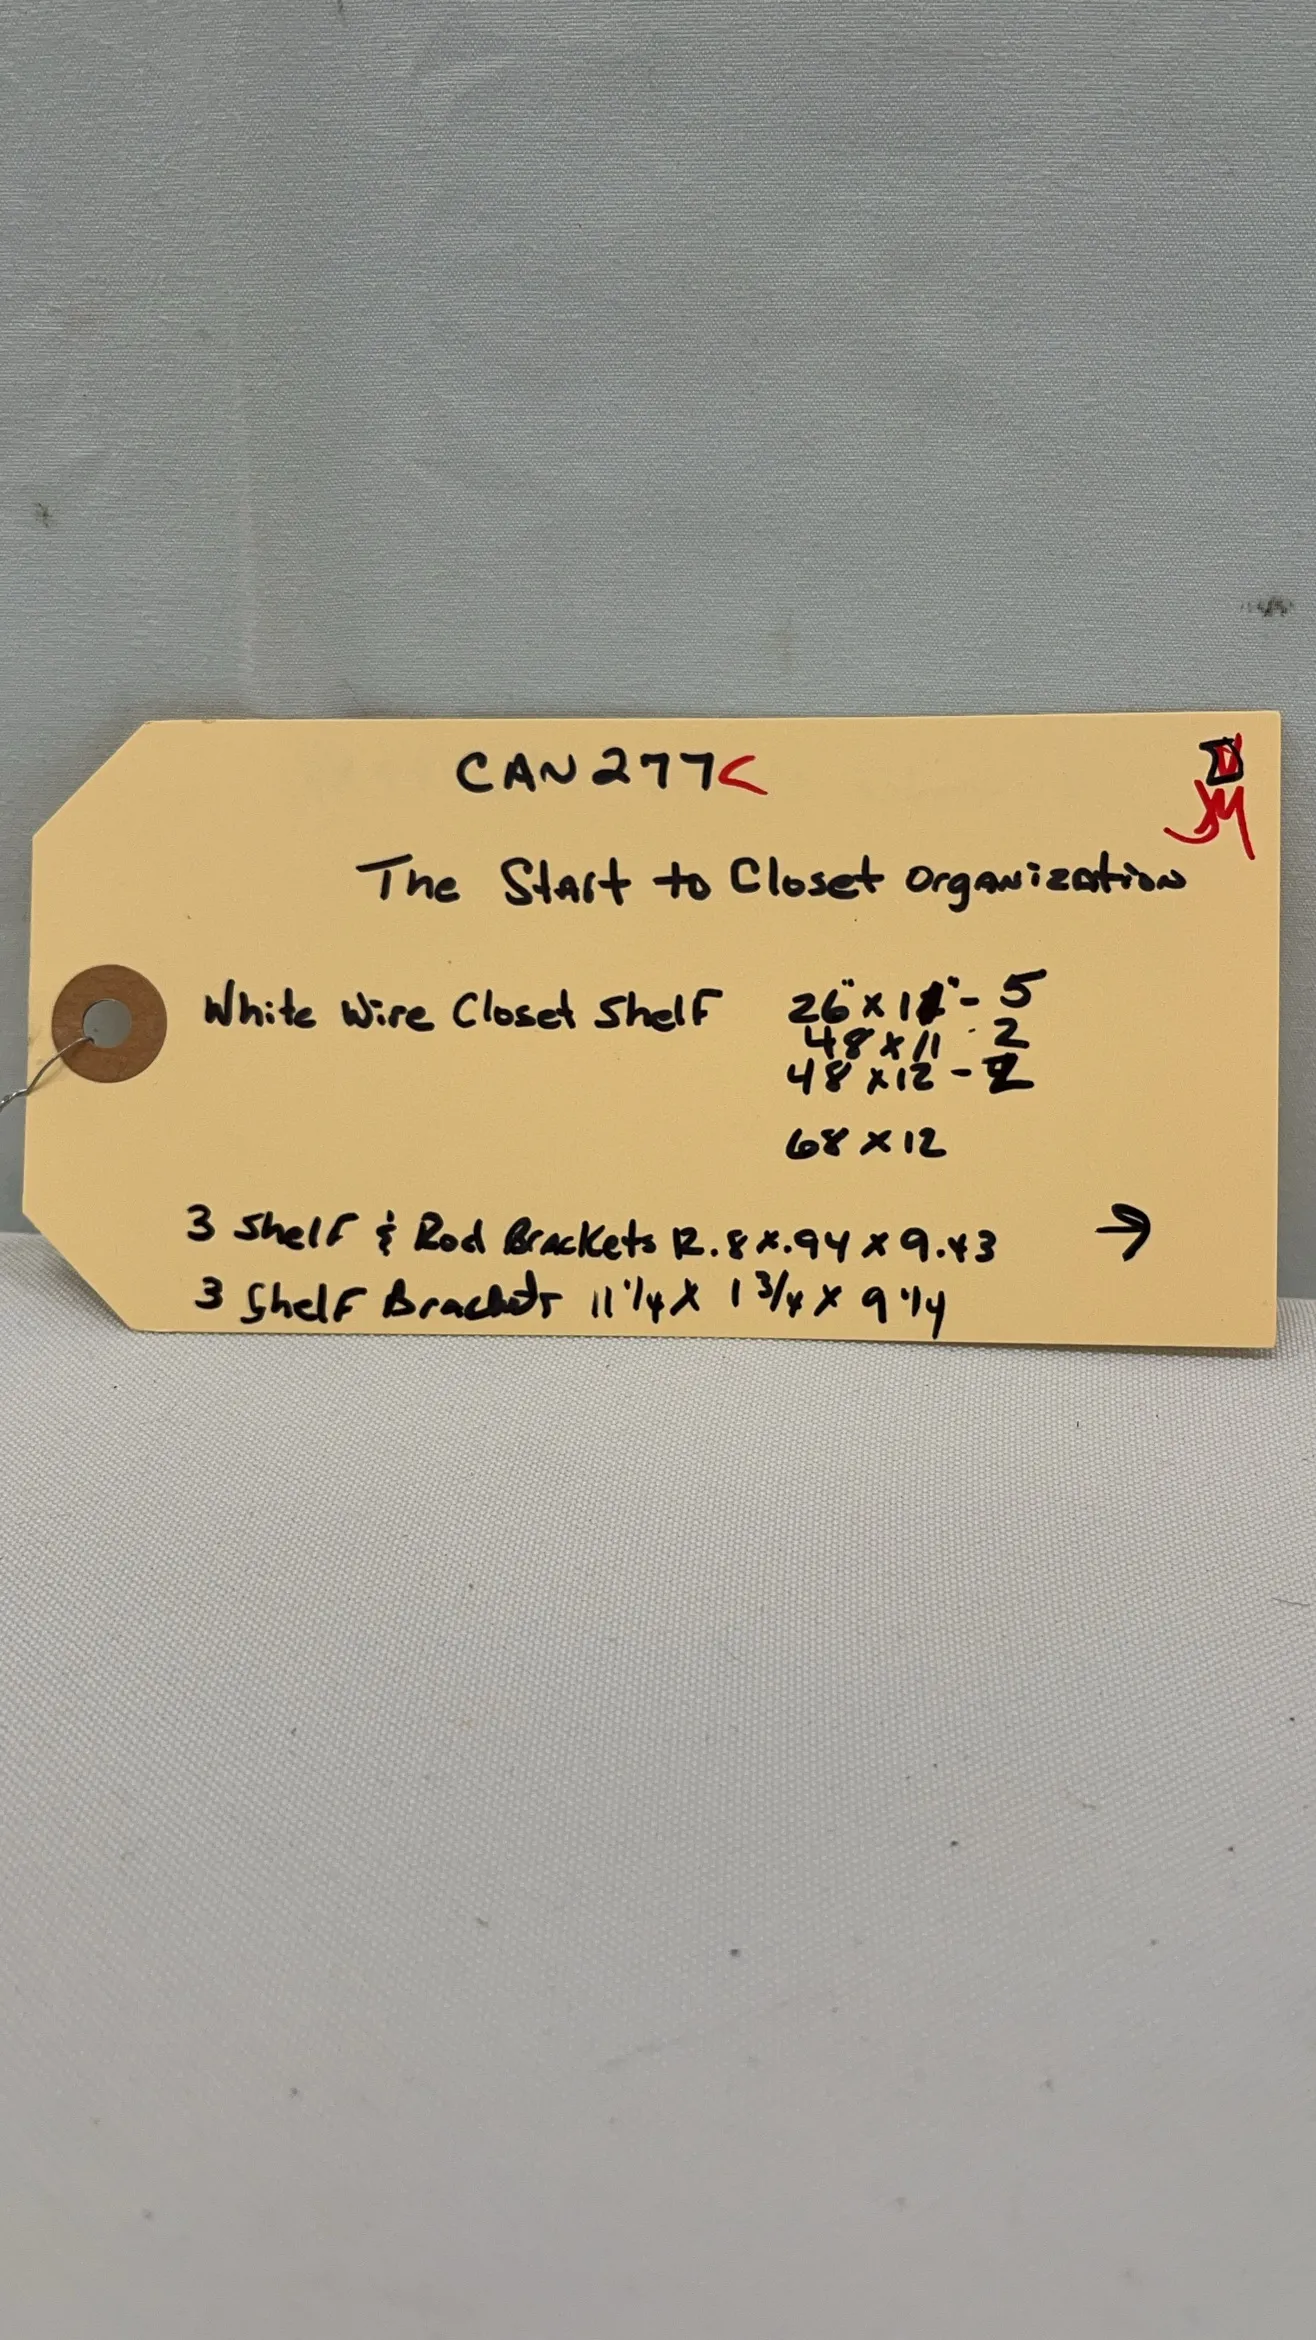 CAN277C
JM
The Start to Closet Organization
White Wire Closet Shelf 26" x 11" - 5
48 x 11 - 2
48 x 12 - 2
68 x 12
3 Shelf & Rod Brackets 12.8 x .94 x 9.43 →
3 Shelf Brackets 11 1/4 x 1 3/4 x 9 1/4